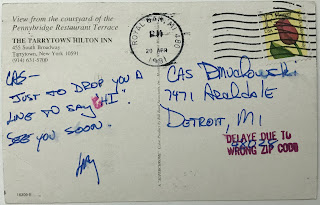 View from the courtyard of the
Pennybridge Restaurant Terrace
THE TARRYTOWN HILTON INN
455 South Broadway
Tarrytown, New York 10591
(914) 631-5700
CAS—
JUST TO DROP YOU A
LINE TO SAY "HI"
SEE YOU SOON.
ROYAL OAK, MI 480
PM
20 APR
1991
CAS
7471
DETROIT, MI
DELAYE DUE TO
WRONG ZIP CODE